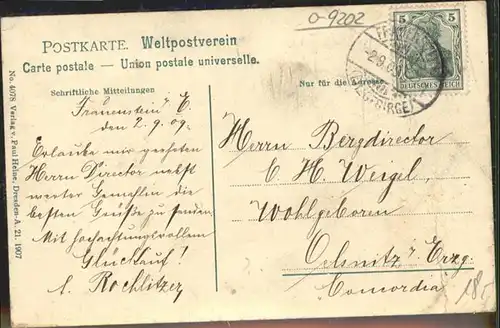 o-9202
POSTKARTE. Weltpostverein
Carte postale — Union postale universelle.
Schriftliche Mitteilungen
Nur für die Adresse
5 5
DEUTSCHES REICH
FRAUENSTEIN
2.9.09
(ERZGEBIRGE)
Frauenstein i/E.
den 2. 9. 09.
Erlaube mir geehrten
Herrn Director nebst
werter Gemahlin die
besten Grüße zu senden.
Mit hochachtungsvollem
Glückauf!
Rochlitzer
Herrn Bergdirector
C. H. Weigel,
Wohlgeboren
Oelsnitz i/Erzg.
Concordia
18,-
No. 4078 Verlag v. Paul Heine, Dresden-A. 21. 1907